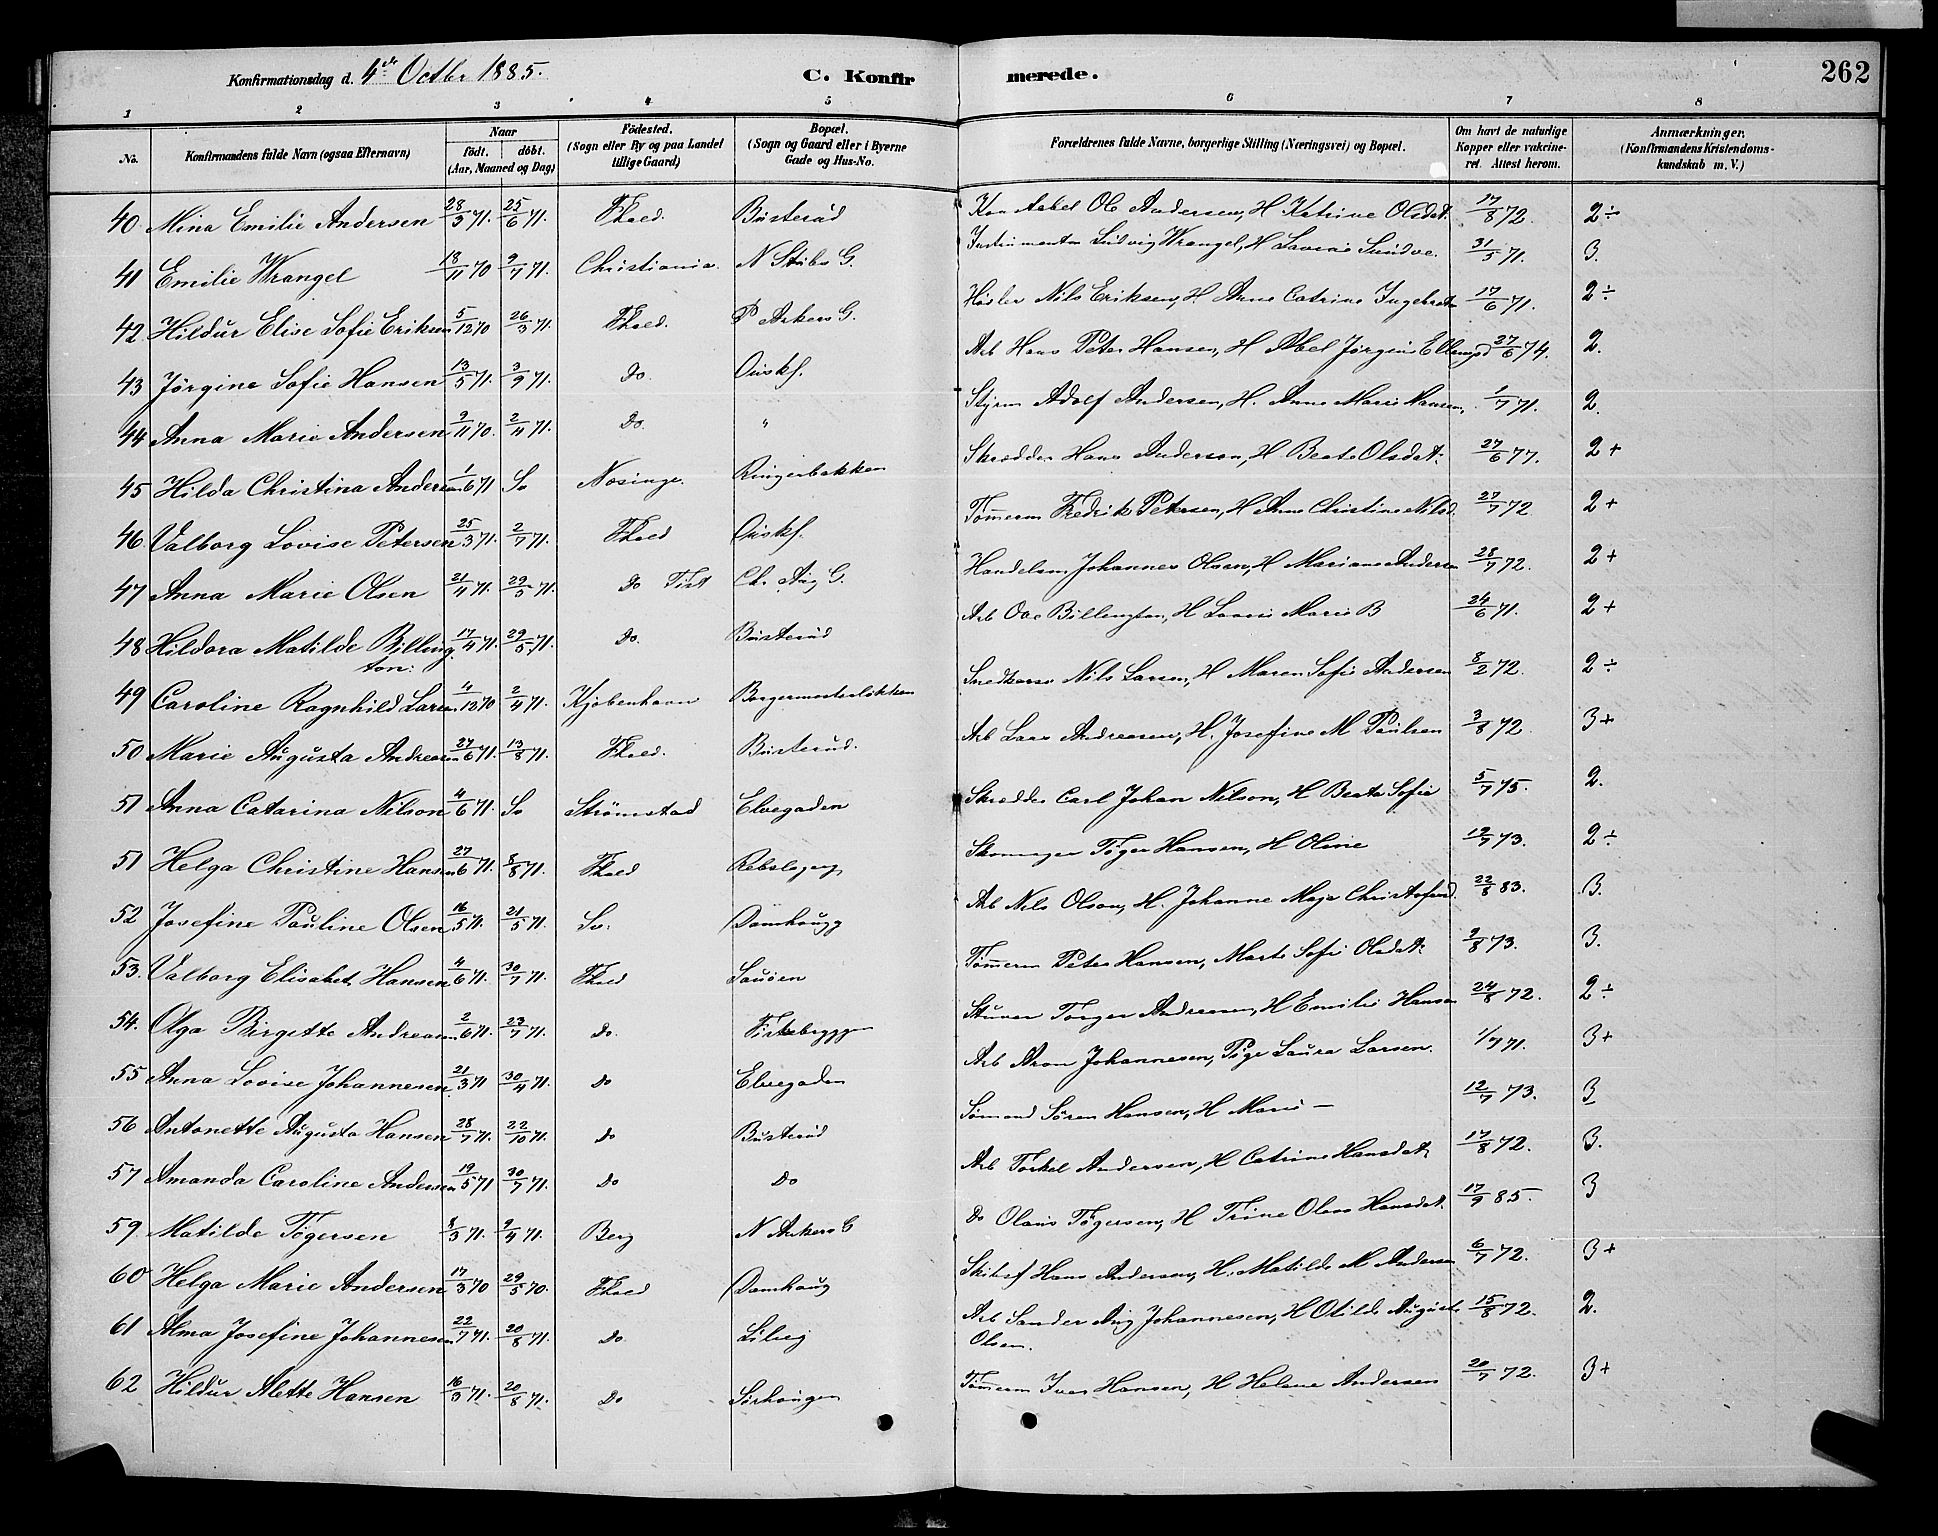 Konfirmationsdag d. 4de Octbr 1885. C. Konfirmerede. 262
1 2 3 4 5 6 7 8
No. Konfirmandens fulde Navn (ogsaa Efternavn) Naar født. døbt. (Aar, Maaned og Dag) Födested. (Sogn eller By og paa Landet tillige Gaard) Bopæl. (Sogn og Gaard eller i Byerne Gade og Hus-No. Forældrenes fulde Navne, borgerlige Stilling (Næringsvei) og Bopæl. Om havt de naturlige Kopper eller vakcineret. Attest herom. Anmærkninger. (Konfirmandens Kristendomskundskab m. V.)
40 Mina Emilie Andersen 28/3 71. 25/6 71. Fhald. Busterud Ole Andersen, H Katrine Olsdat. 17/8 72. 2÷
41 Emilie Wrangel 18/11 70 9/7 71. Christiania. N Stibs G. Instrumentm Ludvig Wrangel, H Lovise Sundve. 31/5 71. 3.
42 Hildur Elise Sofie Eriksen 5/12 70 26/3 71. Fhald. P Ankers G. Høsler Nils Eriksen, H. Anne Catrine Ingebretn 17/6 71. 2÷
43 Jørgine Sofie Hansen 13/5 71. 3/9 71. Do. Ouiskf. Arb Hans Peter Hansen, H Abel Jørgine Ellengsd 27/6 74. 2.
44 Anna Marie Andersen 9/11 70. 2/4 71. Do. " Styrm Adolf Andersen, H. Anne Marie Hansen, 1/7 71. 2.
45 Hilda Christina Andersen 1/6 71 Sv Nösinge. Ringerbakken Skrædder Hans Anderson, H Beate Olsdat. 27/6 77. 2+
46 Valborg Lovise Petersen 25/3 71. 2/7 71. Fhald Ouiskf. Tømerm Fredrik Petersen, H Anne Christine Nilsd. 27/7 72. 2+
47 Anna Marie Olsen 21/4 71. 29/5 71. Do Tist Ch. Aug G. Handelsm Johannes Olsen, H Mariane Andersen 28/7 72. 2+
48 Hildora Matilde Billing 17/4 71. 29/5 71. Do. Busterud Arb Ove Billington, H Lovise Marie B 24/6 71. 2+
ton:
49 Caroline Ragnhild Larsen 4/12 70 2/4 71. Kjøbenhavn Borgermesterløkken Snedkersv Nils Larsen, H Maren Sofie Andersen 8/2 72. 2÷
50 Marie Augusta Andreasen 27/6 71. 13/8 71. Fhald. Busterud. Arb Lars Andreasen, H. Josefine M Paulsen 3/8 72. 3+
51 Anna Catarina Nilson 4/6 71. Sv Strömstad Elvegaden Skrædder Carl Johan Nilson, H Beata Sofia 5/7 75. 2.
51 Helga Christine Hansen 27/6 71. 8/8 71. Fhald Rebslagerg Skomager Töger Hansen, H Oline 12/7 73. 2÷
52 Josefine Pauline Olsen 16/5 71. 21/5 71. Sv. Damhaugg Arb Nils Olson, H. Johanne Maja Christofersd. 22/8 83. 3.
53. Valborg Elisabet Hansen 4/6 71. 30/7 71. Fhald Sauöen Tømerm Peter Hansen, Marte Sofi Olsdat. 9/8 73. 3.
54. Olga Birgitte Andreasen 2/6 71. 23/7 71. Do. Fiskebrygge Stuver Torger Andreasen, H Emilie Hansen 24/8 72. 2÷
55 Anna Lovise Johannesen 21/3 71 30/4 71. Do Elvegaden Arb Aron Johannesen, Pige Laura Larsen. 1/7 71. 3+
56 Antonette Augusta Hansen 28/7 71. 22/10 71. Do Busterud Sømand Søren Hansen, H Marie — 12/7 73. 3
57 Amanda Caroline Andersen 19/5 71 30/7 71. Do Do Arb Torkel Andersen, H Catrine Hansdat. 17/8 72. 3.
59. Matilde Tögersen 8/3 71. 9/4 71. Berg N Ankers G Do Olaus Tögersen, H Trine Olava Hansdat. 17/9 85. 3
60 Helga Marie Andersen 17/3 70 29/5 70. Fhald Damhaug Skibsf Hans Andersen, H. Matilde M Andersen 6/7 72. 3+
61 Alma Josefine Johannesen 22/7 71. 20/8 71. Do. Lilvej Arb Sander Aug Johannesen, H Otilde Auguste 15/8 72. 2.
Olsen.
62 Hildur Alette Hansen 16/3 71. 20/8 71. Do Sørhaugen Tømerm Iver Hansen, H Helene Andersen 20/7 72. 3+